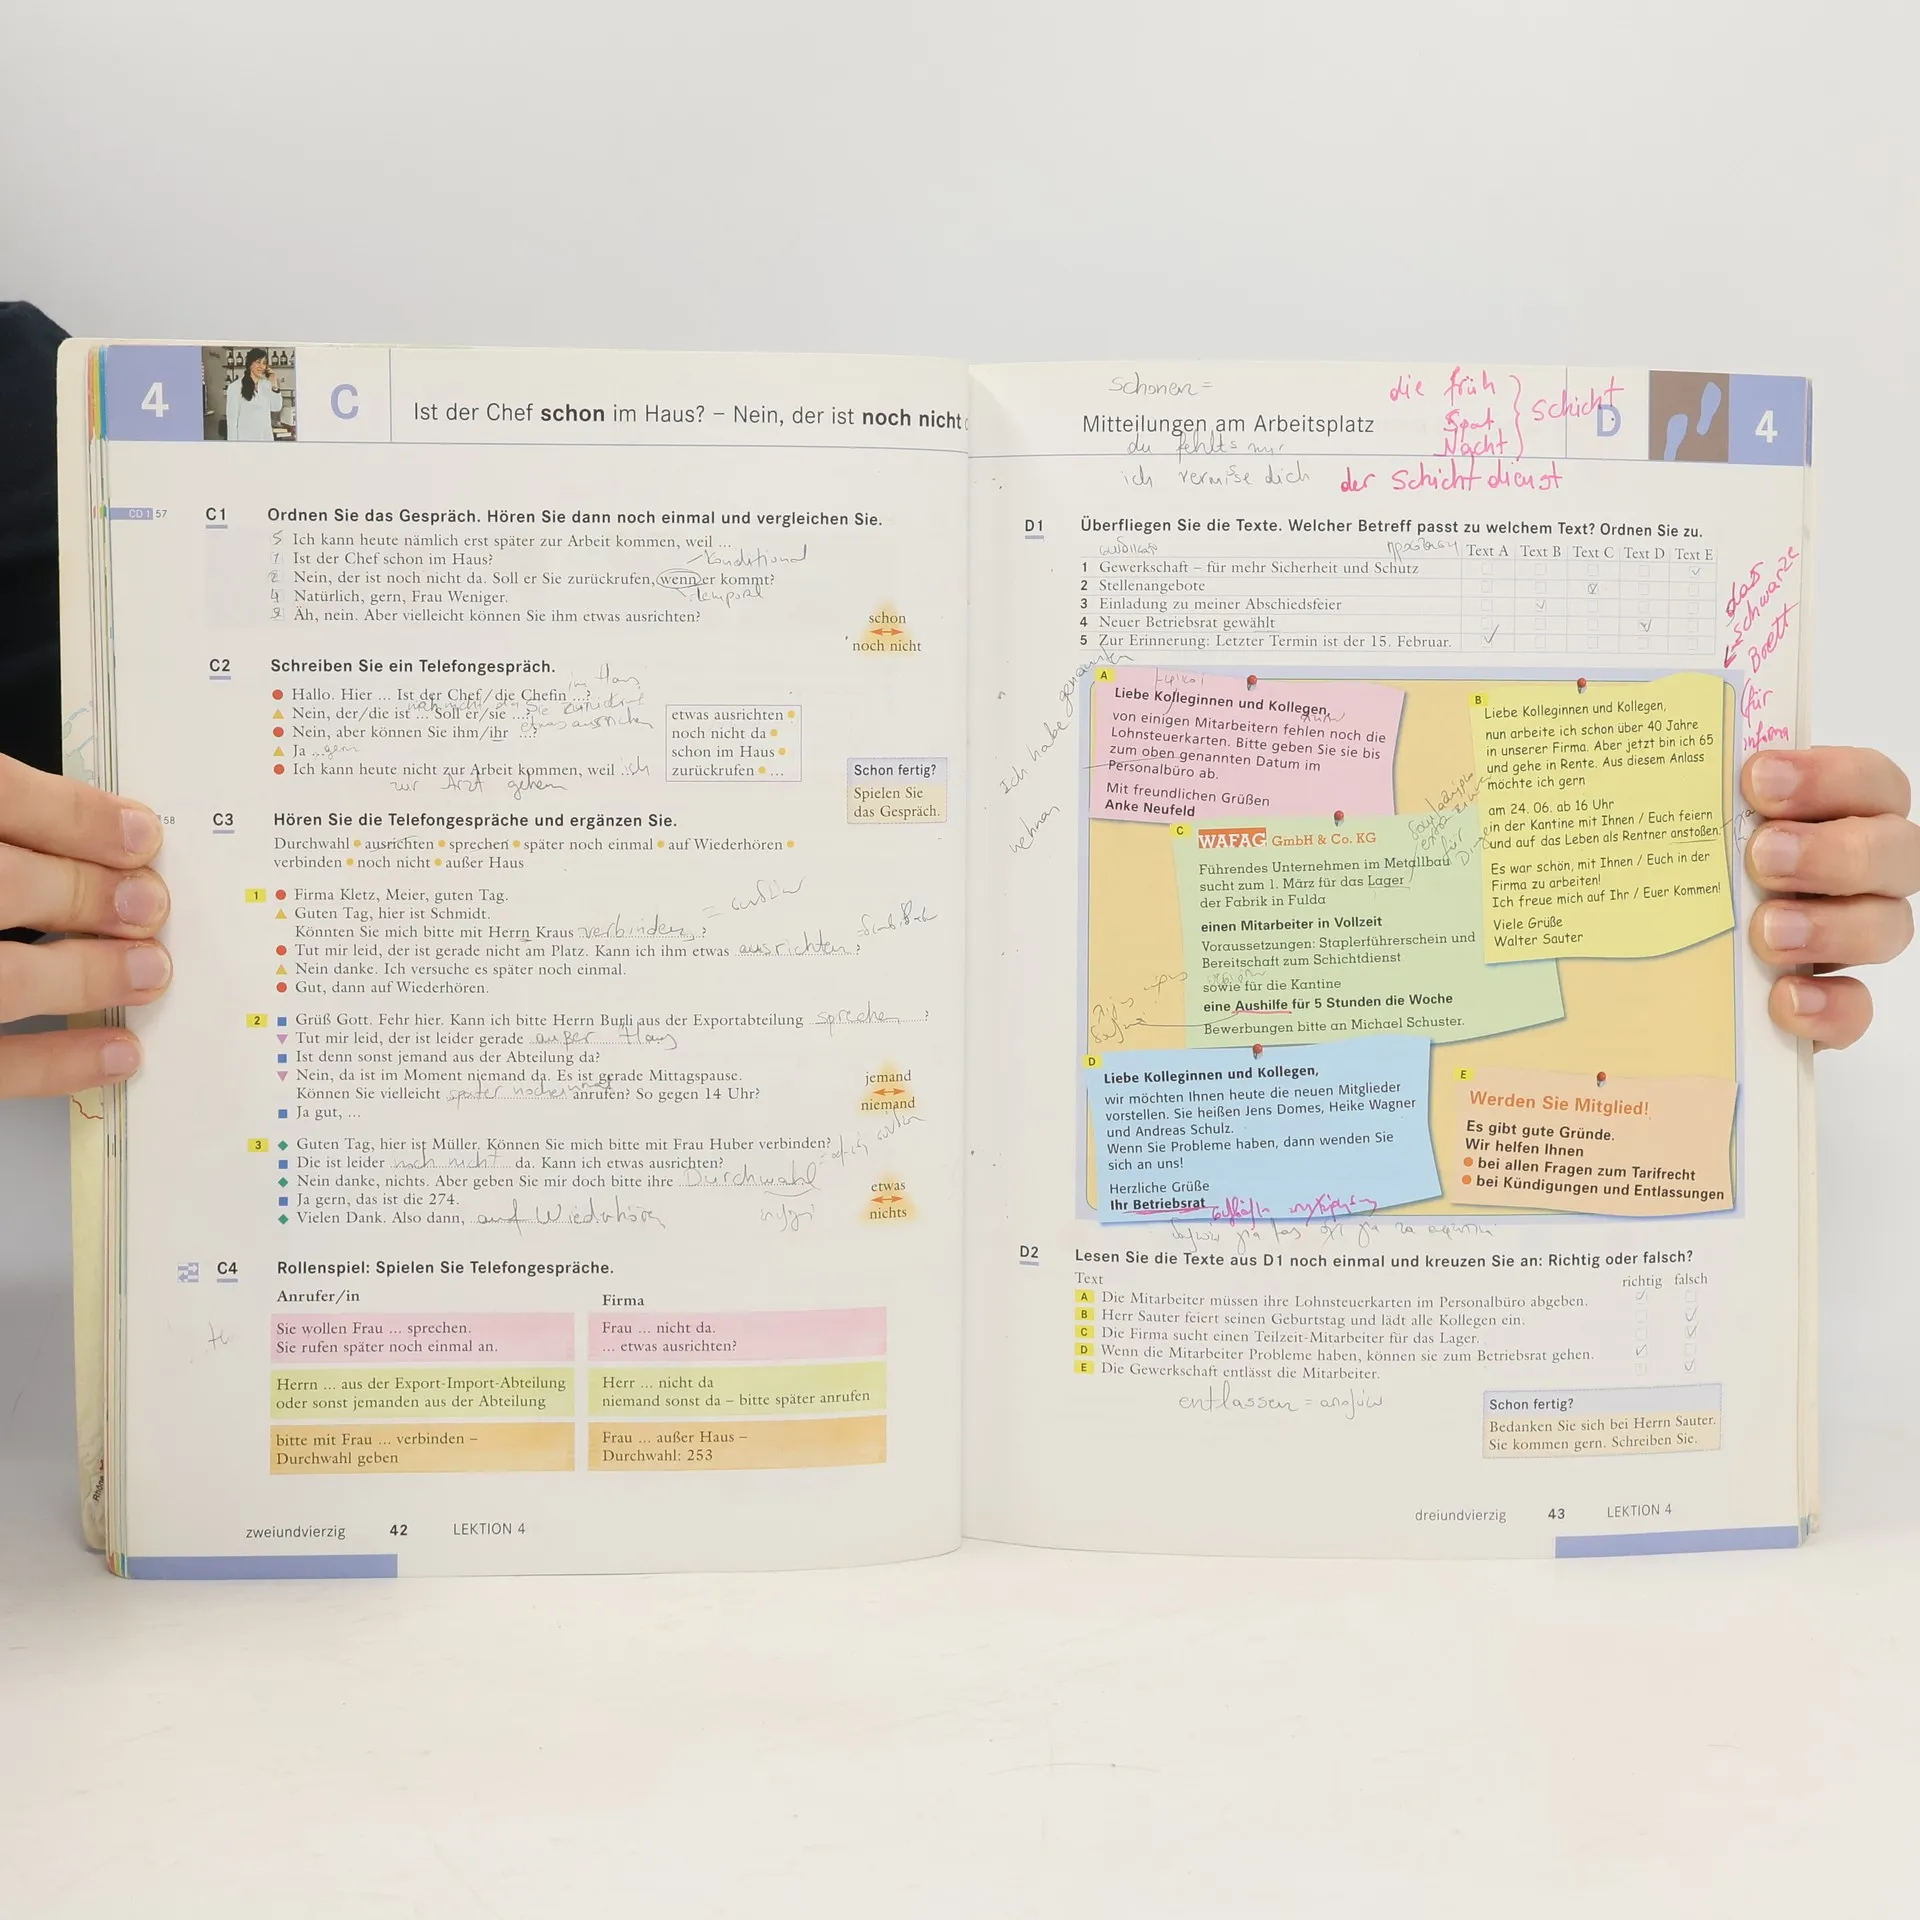 4
C
Ist der Chef schon im Haus? – Nein, der ist noch nicht
CD 1 57
C1 Ordnen Sie das Gespräch. Hören Sie dann noch einmal und vergleichen Sie.
5 Ich kann heute nämlich erst später zur Arbeit kommen, weil ...
1 Ist der Chef schon im Haus?
Konditional
2 Nein, der ist noch nicht da. Soll er Sie zurückrufen, wenn er kommt?
temporal
4 Natürlich, gern, Frau Weniger.
3 Äh, nein. Aber vielleicht können Sie ihm etwas ausrichten?
schon
noch nicht
C2 Schreiben Sie ein Telefongespräch.
im Haus
Hallo. Hier ... Ist der Chef/die Chefin ...?
Nein, der/die ist ... Soll er/sie ...?
etwas ausrichten
Nein, aber können Sie ihm/ihr ...?
Ja ... gern
Ich kann heute nicht zur Arbeit kommen, weil ... ich
zur Arzt gehen
etwas ausrichten
noch nicht da
schon im Haus
zurückrufen ...
Schon fertig?
Spielen Sie
das Gespräch.
58
C3 Hören Sie die Telefongespräche und ergänzen Sie.
Durchwahl ausrichten sprechen später noch einmal auf Wiederhören
verbinden noch nicht außer Haus
1 Firma Kletz, Meier, guten Tag.
Guten Tag, hier ist Schmidt.
Könnten Sie mich bitte mit Herrn Kraus verbinden?
Tut mir leid, der ist gerade nicht am Platz. Kann ich ihm etwas ausrichten?
Nein danke. Ich versuche es später noch einmal.
Gut, dann auf Wiederhören.
2 Grüß Gott. Fehr hier. Kann ich bitte Herrn Burli aus der Exportabteilung sprechen?
Tut mir leid, der ist leider gerade außer Haus
Ist denn sonst jemand aus der Abteilung da?
Nein, da ist im Moment niemand da. Es ist gerade Mittagspause.
Können Sie vielleicht später noch einmal anrufen? So gegen 14 Uhr?
Ja gut, ...
jemand
niemand
3 Guten Tag, hier ist Müller. Können Sie mich bitte mit Frau Huber verbinden?
Die ist leider noch nicht da. Kann ich etwas ausrichten?
Nein danke, nichts. Aber geben Sie mir doch bitte ihre Durchwahl
Ja gern, das ist die 274.
Vielen Dank. Also dann, auf Wiederhören
etwas
nichts
C4 Rollenspiel: Spielen Sie Telefongespräche.
Anrufer/in
Firma
Sie wollen Frau ... sprechen.
Sie rufen später noch einmal an.
Frau ... nicht da.
... etwas ausrichten?
Herrn ... aus der Export-Import-Abteilung
oder sonst jemanden aus der Abteilung
Herr ... nicht da
niemand sonst da – bitte später anrufen
bitte mit Frau ... verbinden –
Durchwahl geben
Frau ... außer Haus –
Durchwahl: 253
zweiundvierzig 42 LEKTION 4
schonen =
die früh
Spät
Nacht
Schicht
Mitteilungen am Arbeitsplatz
D
4
du fehlts mir
ich vermisse dich
der Schichtdienst
D1 Überfliegen Sie die Texte. Welcher Betreff passt zu welchem Text? Ordnen Sie zu.
Text A Text B Text C Text D Text E
1 Gewerkschaft – für mehr Sicherheit und Schutz
2 Stellenangebote
3 Einladung zu meiner Abschiedsfeier
4 Neuer Betriebsrat gewählt
5 Zur Erinnerung: Letzter Termin ist der 15. Februar.
das
schwarze
Brett
für
Ich habe genommen
nehmen
A
Liebe Kolleginnen und Kollegen,
von einigen Mitarbeitern fehlen noch die
Lohnsteuerkarten. Bitte geben Sie sie bis
zum oben genannten Datum im
Personalbüro ab.
Mit freundlichen Grüßen
Anke Neufeld
B
Liebe Kolleginnen und Kollegen,
nun arbeite ich schon über 40 Jahre
in unserer Firma. Aber jetzt bin ich 65
und gehe in Rente. Aus diesem Anlass
möchte ich gern
am 24. 06. ab 16 Uhr
in der Kantine mit Ihnen / Euch feiern
und auf das Leben als Rentner anstoßen.
Es war schön, mit Ihnen / Euch in der
Firma zu arbeiten!
Ich freue mich auf Ihr / Euer Kommen!
Viele Grüße
Walter Sauter
C
WAFAG GmbH & Co. KG
Führendes Unternehmen im Metallbau
sucht zum 1. März für das Lager
der Fabrik in Fulda
einen Mitarbeiter in Vollzeit
Voraussetzungen: Staplerführerschein und
Bereitschaft zum Schichtdienst
sowie für die Kantine
eine Aushilfe für 5 Stunden die Woche
Bewerbungen bitte an Michael Schuster.
D
Liebe Kolleginnen und Kollegen,
wir möchten Ihnen heute die neuen Mitglieder
vorstellen. Sie heißen Jens Domes, Heike Wagner
und Andreas Schulz.
Wenn Sie Probleme haben, dann wenden Sie
sich an uns!
Herzliche Grüße
Ihr Betriebsrat
E
Werden Sie Mitglied!
Es gibt gute Gründe.
Wir helfen Ihnen
bei allen Fragen zum Tarifrecht
bei Kündigungen und Entlassungen
D2 Lesen Sie die Texte aus D1 noch einmal und kreuzen Sie an: Richtig oder falsch?
Text richtig falsch
A Die Mitarbeiter müssen ihre Lohnsteuerkarten im Personalbüro abgeben.
B Herr Sauter feiert seinen Geburtstag und lädt alle Kollegen ein.
C Die Firma sucht einen Teilzeit-Mitarbeiter für das Lager.
D Wenn die Mitarbeiter Probleme haben, können sie zum Betriebsrat gehen.
E Die Gewerkschaft entlässt die Mitarbeiter.
entlassen =
Schon fertig?
Bedanken Sie sich bei Herrn Sauter.
Sie kommen gern. Schreiben Sie.
dreiundvierzig 43 LEKTION 4